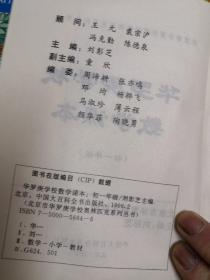 顾 问：王 元 裘宗沪
冯克勤 陈德泉
主 编：刘彭芝
副主编：童 欣
编 委：周沛耕
邓 均 杨骅飞
马淑珍 薄云程
颜华菲 陶晓勇
图书在版编目（CIP）数据
华罗庚学校数学读本：初一年级/刘彭芝主编.
北京：中国大百科全书出版社，1996.2
（北京市华罗庚学校奥林匹克系列丛书）
ISBN 7-5000-5684-6
Ⅰ.华…
Ⅱ.刘…
Ⅲ.数学－小学－教材
Ⅳ.G624.501